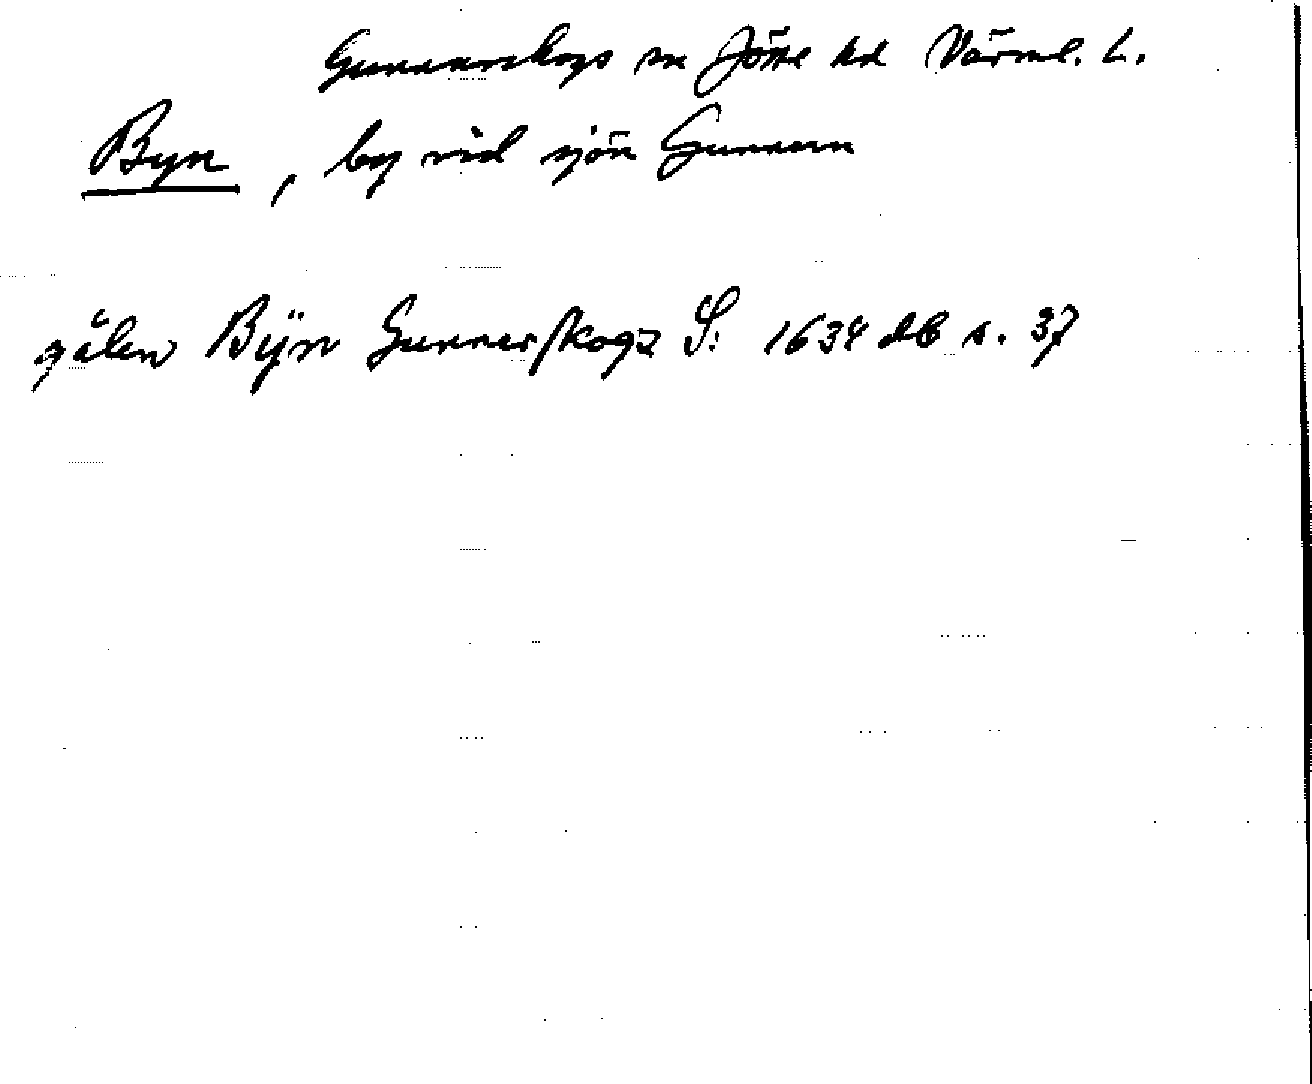 Gunnarskogs sn Jösse hd Värml. L.
Byn, by vid sjön Gunnern
gålen Bÿn Gunnerskogz S: 1634 db s. 37